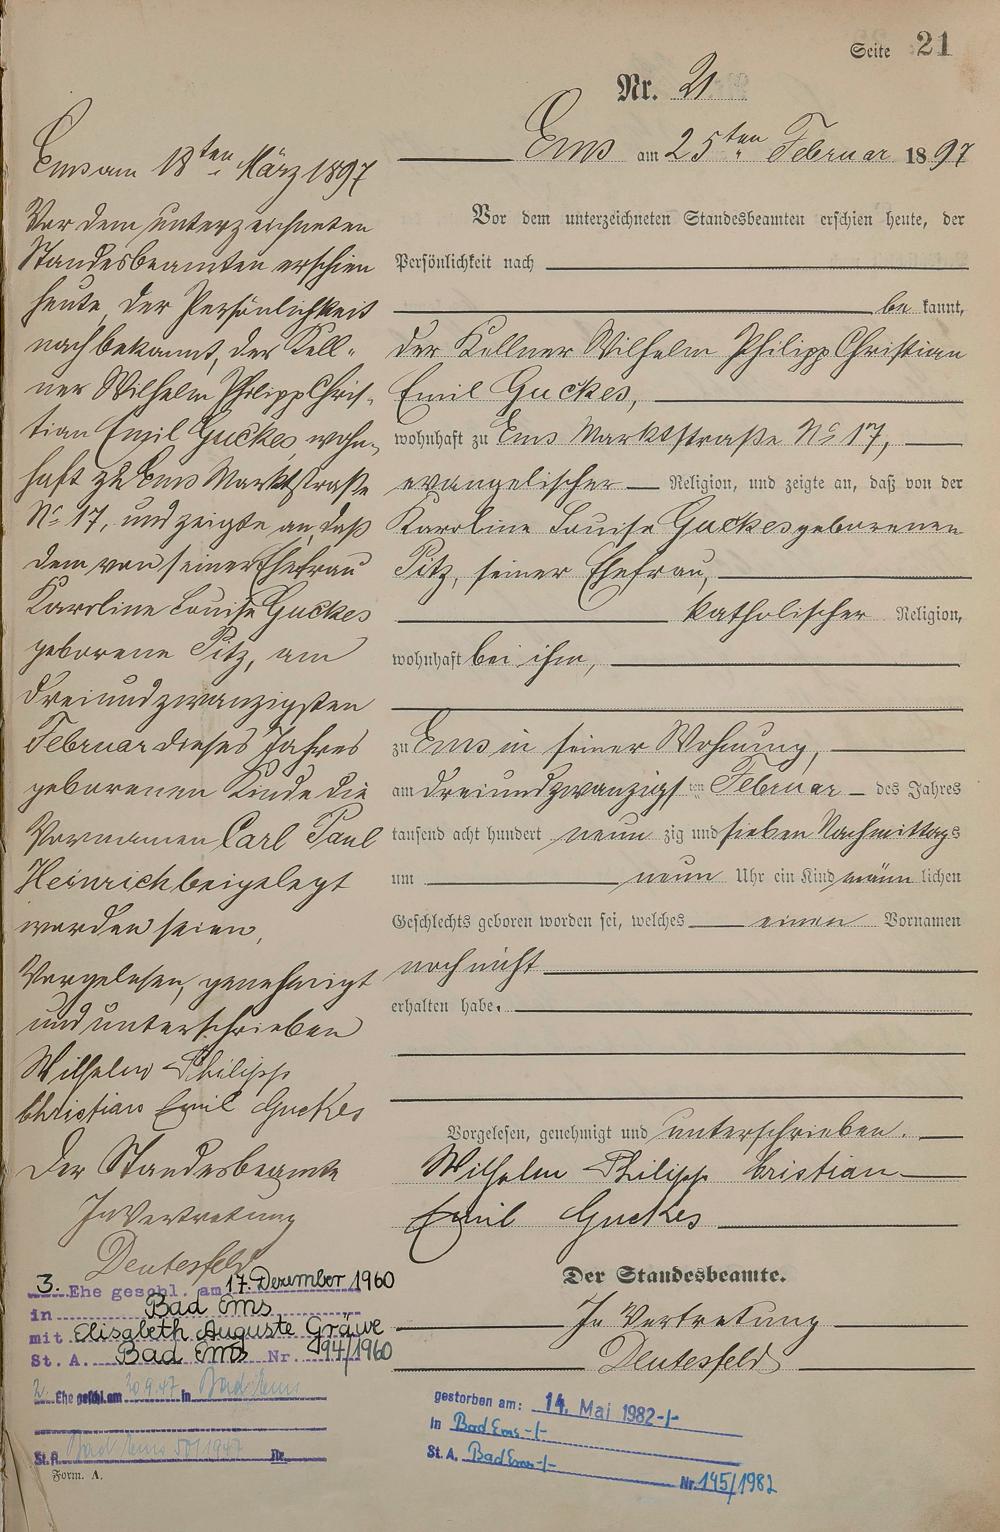 Seite 21
Nr. 21
Ems am 25ten Februar 1897
Vor dem unterzeichneten Standesbeamten erschien heute, der
Persönlichkeit nach
be kannt,
der Kellner Wilhelm Philipp Christian
Emil Guckes,
wohnhaft zu Ems Marktstraße No 17,
evangelischer Religion, und zeigte an, daß von der
Karoline Louise Guckes geborenen
Pitz, seiner Ehefrau,
katholischer Religion,
wohnhaft bei ihm,
zu Ems in seiner Wohnung,
am dreiundzwanzigsten Februar des Jahres
tausend acht hundert neun zig und sieben Nachmittags
um neun Uhr ein Kind männlichen
Geschlechts geboren worden sei, welches einen Vornamen
noch nicht
erhalten habe.
Vorgelesen, genehmigt und unterschrieben.
Wilhelm Philipp Cristian
Emil Guckes
Der Standesbeamte.
In Vertretung
Deutesfeld
Ems am 18ten März 1897
Vor dem unterzeichneten
Standesbeamten erschien
heute, der Persönlichkeit
nach bekannt, der Kell-
ner Wilhelm Philipp Chris-
tian Emil Guckes, wohn-
haft zu Ems Marktstraße
No 17, und zeigte an, daß
dem von seiner Ehefrau
Karoline Louise Guckes
geborene Pitz, am
dreiundzwanzigsten
Februar dieses Jahres
geborenen Kinde die
Vornamen Carl Paul
Heinrich beigelegt
worden seien.
Vorgelesen, genehmigt
und unterschrieben
Wilhelm Philipp
Christian Emil Guckes
Der Standesbeamte
In Vertretung
Deutesfeld
3. Ehe geschl. am 17. Dezember 1960
in Bad Ems
mit Elisabeth Auguste Gräwe
St. A. Bad Ems Nr. 94/1960
2. Ehe geschl. am 20.9.47 in Bad Ems
St. A. Bad Ems 50/1947 Nr.
Form. A.
gestorben am: 14. Mai 1982-/-
in Bad Ems-/-
St. A. Bad Ems-/-
Nr. 145/1982